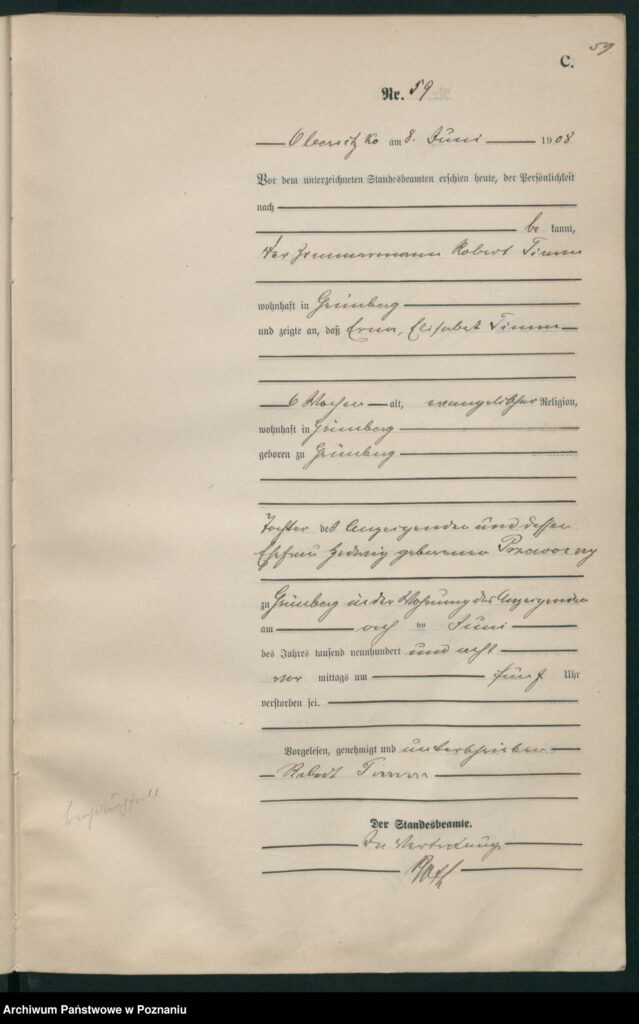 59
C.
Nr. 59
Obersitzko am 8. Juni 1908
Vor dem unterzeichneten Standesbeamten erschien heute, der Persönlichkeit
nach
be kannt,
der Zimmermann Robert Timm
wohnhaft in Grünberg
und zeigte an, daß Erna, Elisabet Timm
6 Wochen alt, evangelischer Religion,
wohnhaft in Grünberg
geboren zu Grünberg
Tochter des Anzeigenden und dessen
Ehefrau Hedwig geborenen
zu Grünberg in der Wohnung des Anzeigenden
am acht ten Juni
des Jahres tausend neunhundert und acht
vor mittags um fünf Uhr
verstorben sei.
Vorgelesen, genehmigt und unterschrieben
Robert Timm
Der Standesbeamte.
In Vertretung
Archiwum Państwowe w Poznaniu